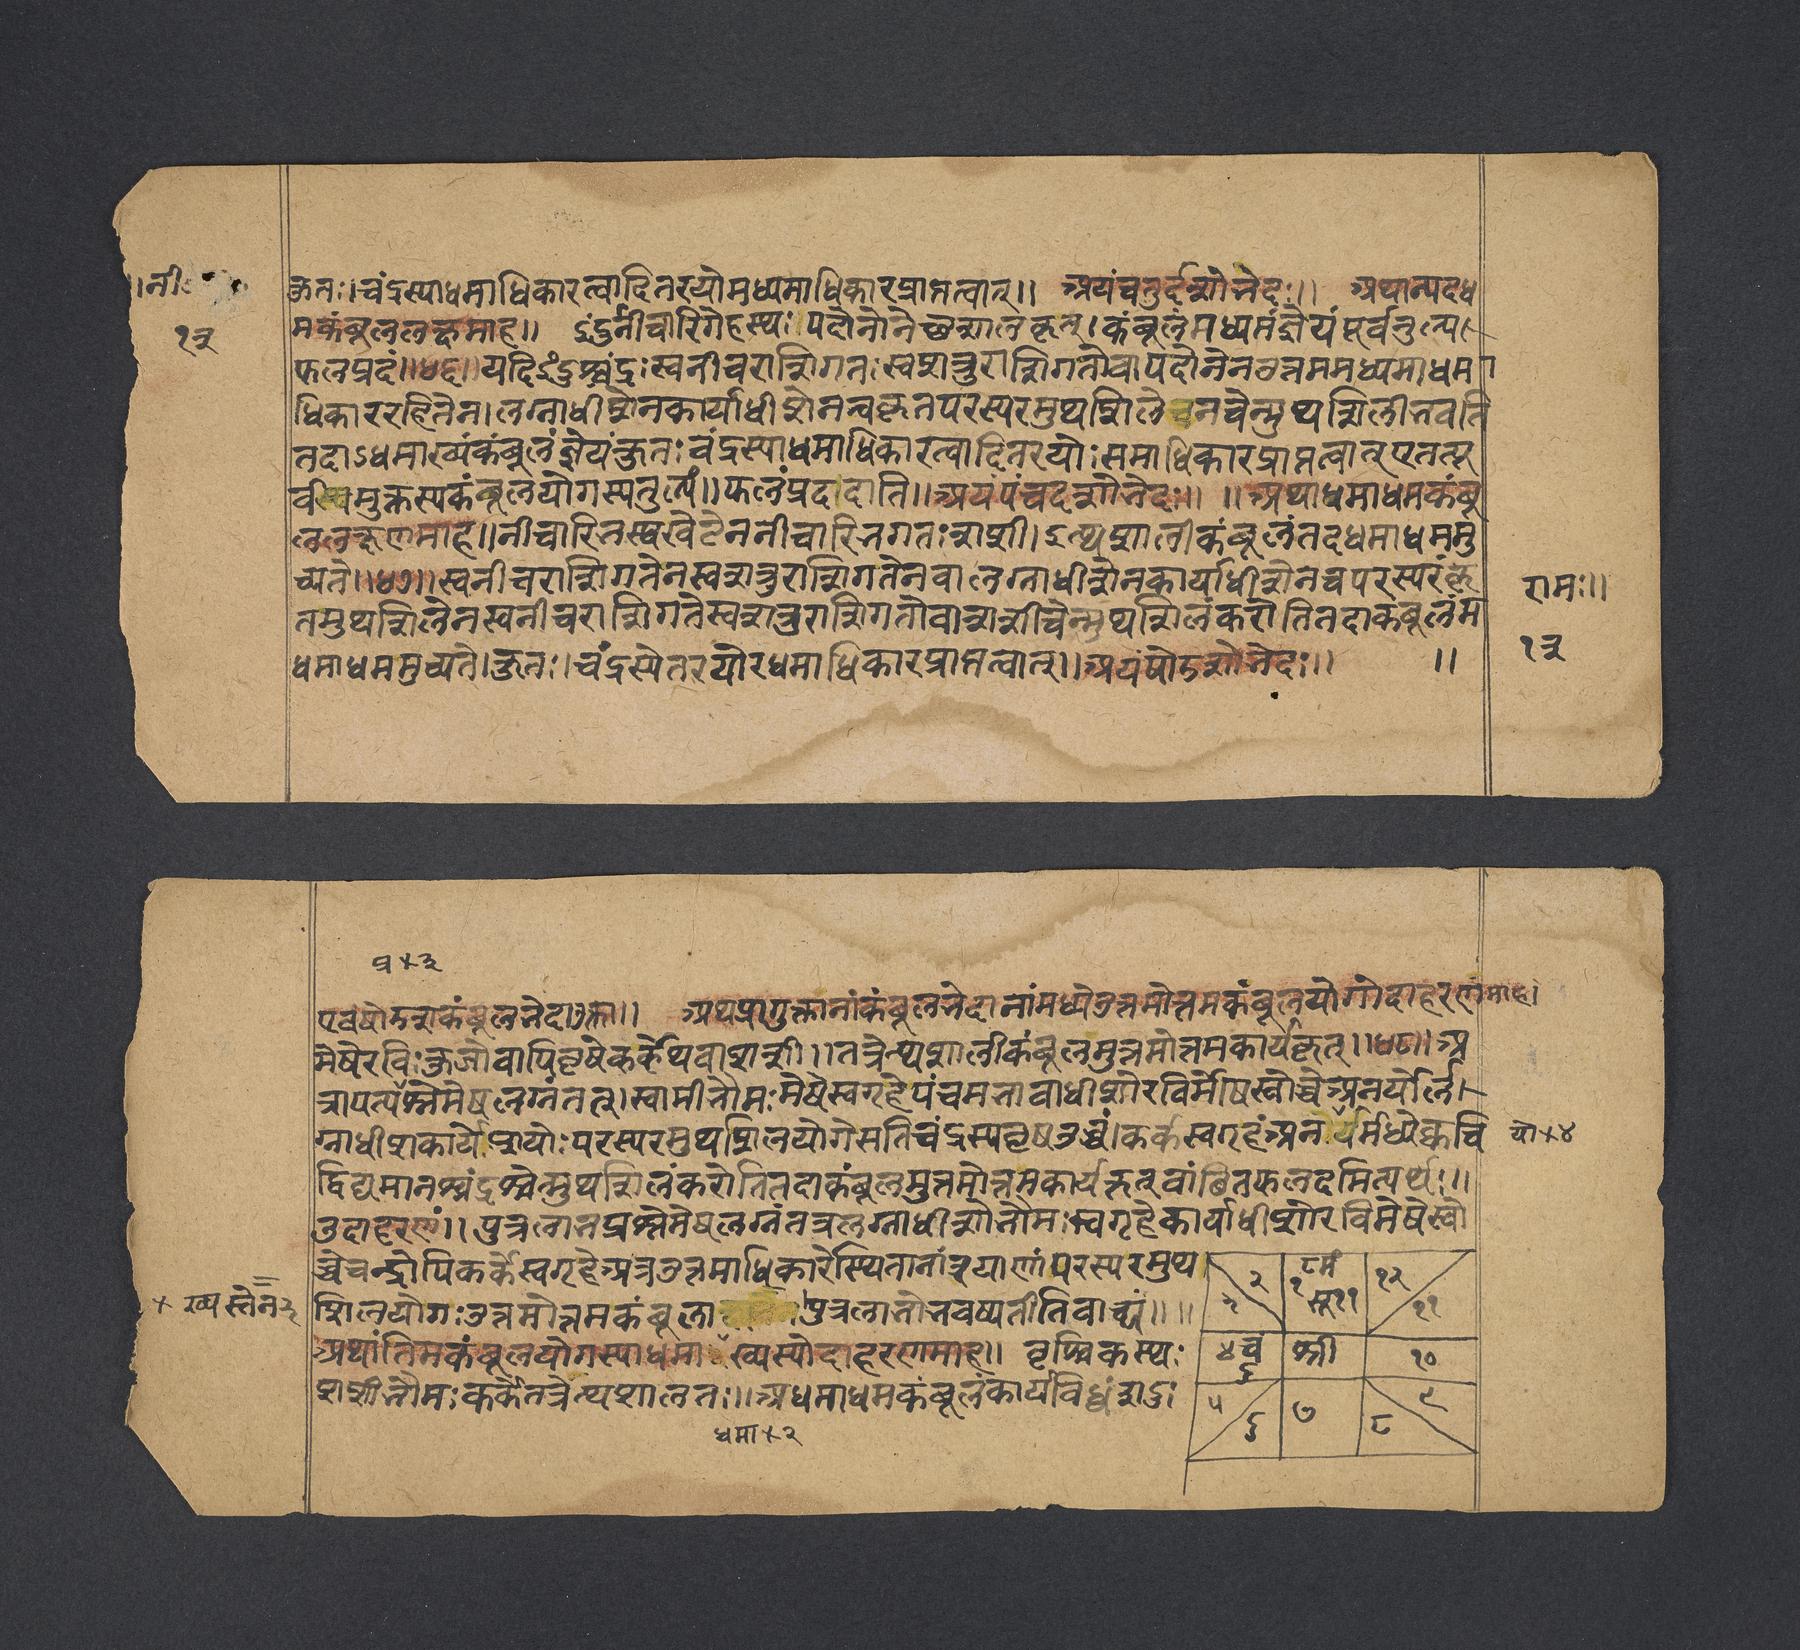 ।।नी
कुतः।चंद्रस्याधमाधिकारत्वादितरयोमध्यमाधिकारप्राप्तत्वात्।। अयंचतुर्दशोभेदः।। अथान्यदध
१३
मकंबूललक्षमाह।। इंदुर्नीचारिगेहस्थः पदोनोनेच्छशालकृत्।कंबूलंमध्यमंज्ञेयंपूर्वतुल्य
फलप्रदं।।४६।।यदिइंदुश्चंद्रःस्वनीचराशिगतःस्वशत्रुराशिगतोवापदोनेनउत्तममध्यमाधमा
धिकाररहितेन।लग्नाधीशेनकार्याधीशेनचकृतपरस्परमुथशिलेचनचेन्मुथशिलीभवति
तदाऽधमाख्यंकंबूलंज्ञेयंकुतःचंद्रस्याधमाधिकारत्वादितरयोःसमाधिकारप्राप्तत्वात्एतत्पू
र्वस्यमुक्तस्यकंबूलयोगस्यतुल्यं।।फलंप्रददाति।।अयंपंचदशोभेदः।। ।।अथाधमाधमकंबू
ललक्षणमाह।।नीचारिभस्थखेटेननीचारिभगतःशशी।इत्थशालीकंबूलंतदधमाधममु
च्यते।।४७।।स्वनीचराशिगतेनस्वशत्रुराशिगतेनवालग्नाधीशेनकार्याधीशेनचपरस्परंकृ
तमुथशिलेनस्वनीचराशिगतेस्वशत्रुराशिगतोवाशशीचेन्मुथशिलंकरोतितदाकंबूलंम
रामः।।
धमाधममुच्यते।कुतः।चंद्रस्येतरयोरधमाधिकारप्राप्तत्वात्।।अयंषोडशोभेदः।। ।।
१३
एवषोडशकंबूलभेदाउक्ता।। अथप्रागुक्तानांकंबूलभेदानांमध्येउत्तमोत्तमकंबूलयोगोदाहरणमाह।
मेषेरविःकुजोवापिवृषेकर्केथवाशशी।।तत्रेत्थशालीकंबूलमुत्तमोत्तमकार्यकृत्।।४८।।अ
त्रापत्यप्रश्नेमेषलग्नंतत्।स्वामीभौमःमेषेस्वगृहेपंचमभावाधीशोरविर्मेषेस्वोच्चेअनयोर्ल
ग्नाधीशकार्येशयोःपरस्परमुथशिलयोगेसतिचंद्रस्यवृषउच्चं।कर्कस्वगृहंअनयोर्मध्येक्वचि
यो४
द्विद्यमानश्चंद्रश्चेन्मुथशिलंकरोतितदाकंबूलमुत्तमोत्तमकार्यकृत्वांछितफलदमित्यर्थः।।
उदाहरणं।।पुत्रलाभप्रश्नेमेषलग्नंतत्रलग्नाधीशोभौमःस्वगृहेकार्याधीशोरविमेषेस्वो
च्चेचन्द्रोपिकर्केस्वगृहेअत्रउत्तमाधिकारेस्थितानांत्रयाणांपरस्परमुथ
शिलयोगःउत्तमोत्तमकंबूला पुत्रलाभोभवष्यतीतिवाच्यं।।
अथांतिमकंबूलयोगस्याधमा ख्यस्योदाहरणमाह।। वृश्चिकस्थः
शशीभौमःकर्केतत्रेत्थशालतः।।अधमाधमकंबूलंकार्यविध्वं
धमा २
२ १ १२ ११
४चं १०
५ ६ ७ ८ ९